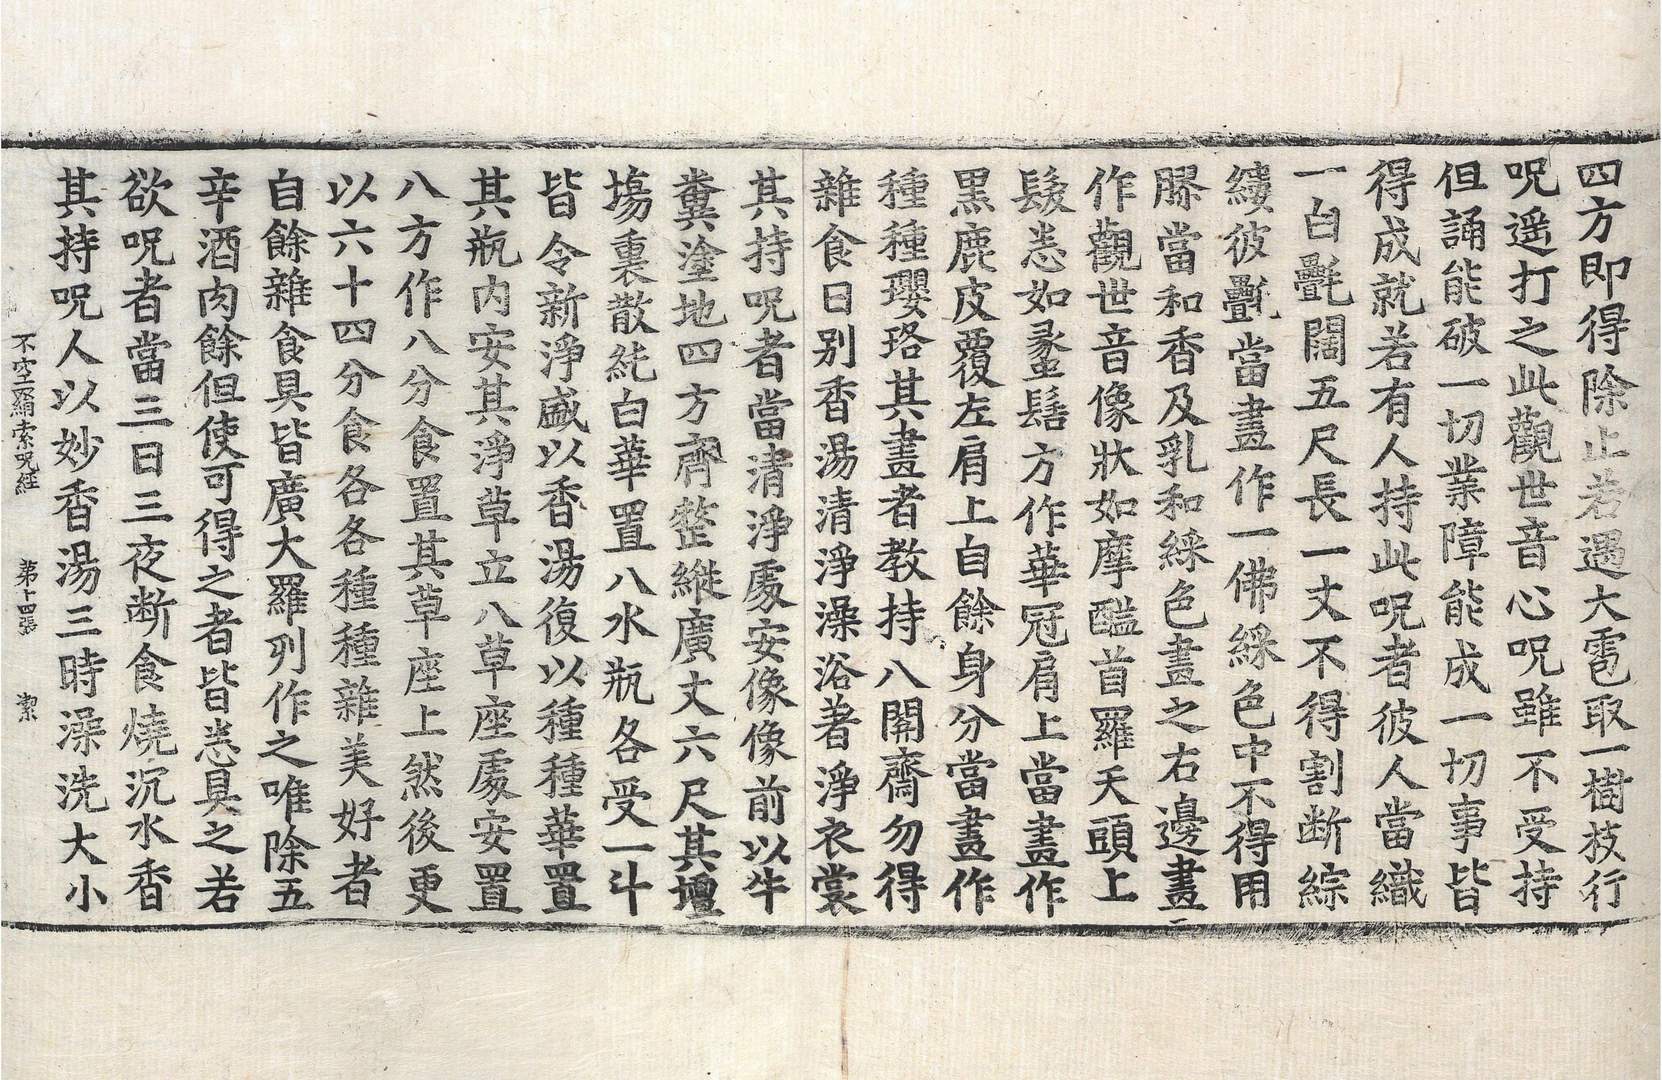 四方即得除止若遇大雹取一樹枝行
呪遥打之此觀世音心呪雖不受持
但誦能破一切業障能成一切事皆
得成就若有人持此呪者彼人當織
一白㲲闊五尺長一丈不得割断綜
縷彼㲲當畫作一佛綵色中不得用
膠當和香及乳和綵色畫之右邊畫
作觀世音像狀如摩醯首羅天頭上
髮悉如螽髻方作華冠肩上當畫作
黒鹿皮覆左肩上自餘身分當畫作
種種瓔珞其畫者教持八關齋勿得
雜食日別香湯清淨澡浴著淨衣裳
其持呪者當清淨處安像像前以牛
糞塗地四方齊整縱廣丈六尺其壇
場裏散純白華置八水瓶各受一斗
皆令新淨盛以香湯復以種種華置
其瓶内安其淨草立八草座處安置
八方作八分食置其草座上然後更
以六十四分食各各種種雜美好者
自餘雜食具皆廣大羅列作之唯除五
辛酒肉餘但使可得之者皆悉具之若
欲呪者當三日三夜断食燒沉水香
其持呪人以妙香湯三時澡洗大小
不空羂索呪經 第十四張 潔